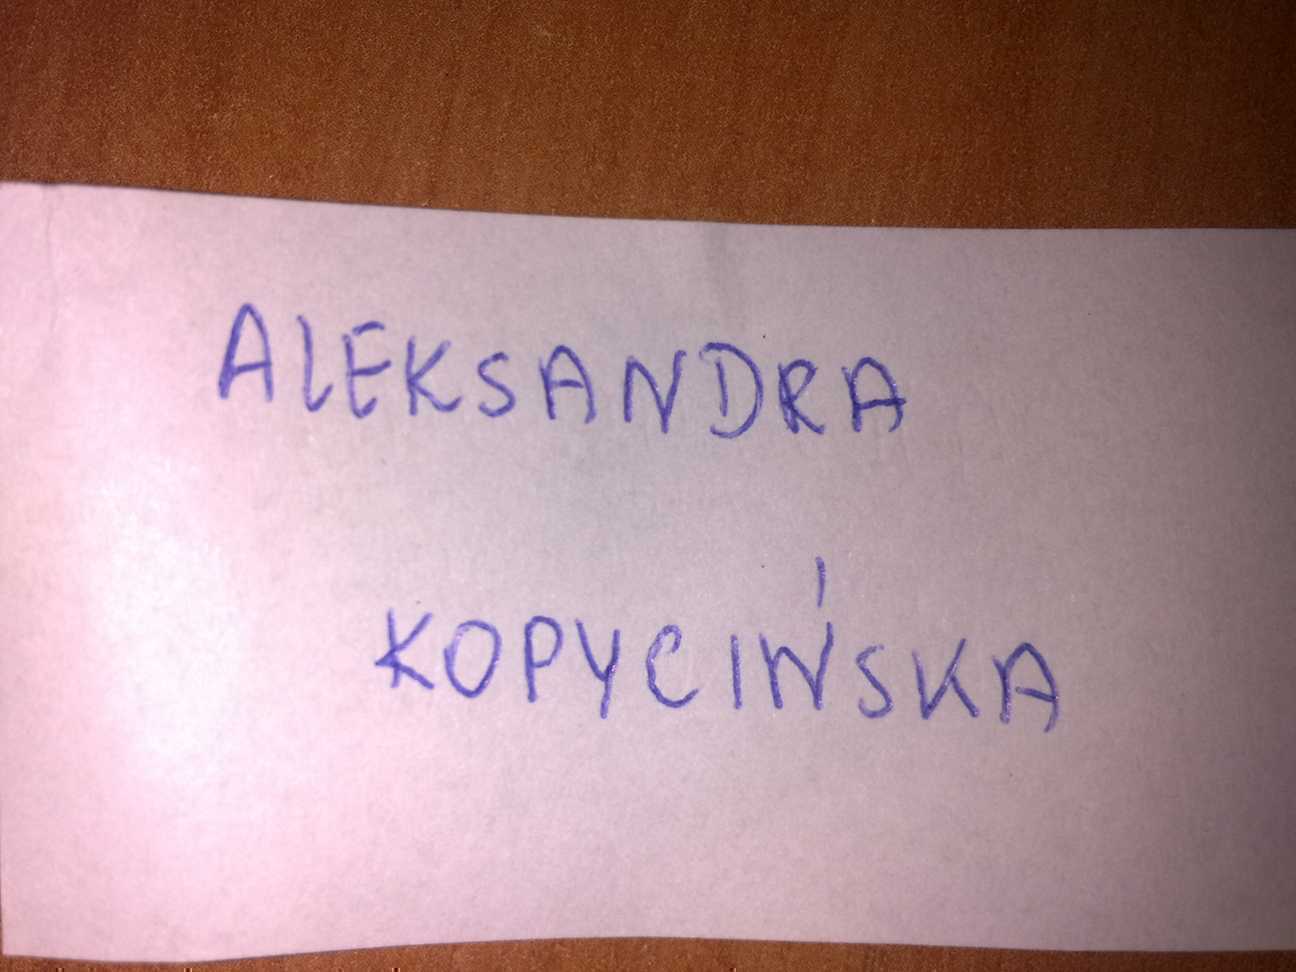 ALEKSANDRA
KOPYCIŃSKA